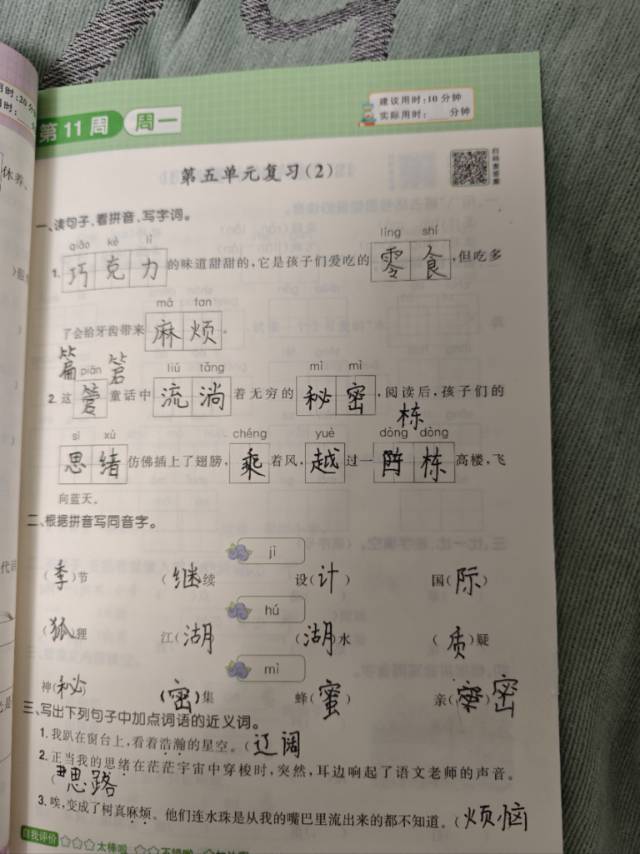 第11周 周一
建议用时:10分钟
实际用时: 分钟
扫码查答案
第五单元复习(2)
一、读句子,看拼音,写字词。
qiǎo kè lì líng shí
1.巧克力的味道甜甜的,它是孩子们爱吃的零食,但吃多
má fan
了会给牙齿带来麻烦。
篇
piān liú tǎng mì mì
2.这童话中流淌着无穷的秘密,阅读后,孩子们的
栋
sī xù chéng yuè dòng dòng
思绪仿佛插上了翅膀,乘着风,越过一阵栋高楼,飞
向蓝天。
二、根据拼音写同音字。
jì
(季)节 (继)续 设(计) 国(际)
hú
(狐)狸 江(湖) (湖)水 (质)疑
mì
神(秘) (密)集 蜂(蜜) 亲(密)密
三、写出下列句子中加点词语的近义词。
1.我趴在窗台上,看着浩瀚的星空。(辽阔
2.正当我的思绪在茫茫宇宙中穿梭时,突然,耳边响起了语文老师的声音。
(思路
3.唉,变成了树真麻烦。他们连水珠是从我的嘴巴里流出来的都不知道。(烦恼
自我评价 ☆☆☆太棒啦 ☆☆不错哦